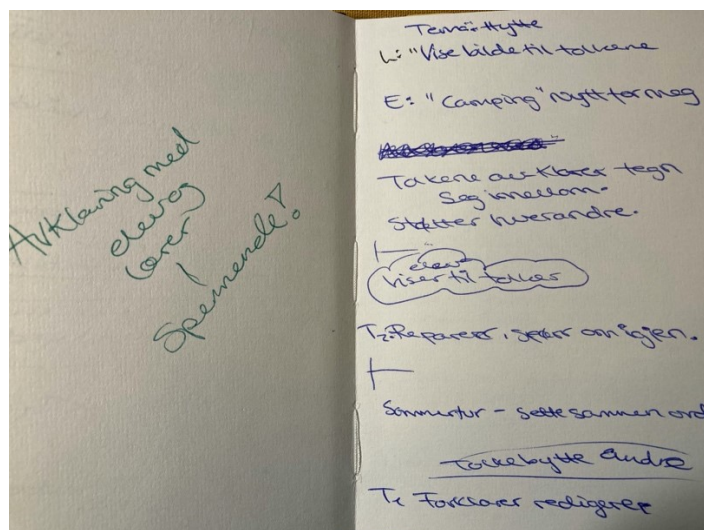 Avklaring med
elev og
lærer
Spennende!
Tema: Hytte
L: "Vise bilde til tolkene
E: "Camping" nytt for meg
Tolkene avklarer tegn
seg imellom.
Støtter hverandre.
elev
Viser til tolker
T2: Reparerer, spør om igjen.
Sommertur - sette sammen ord
Tolkebytte Andre
T1 Forklarer redigerer